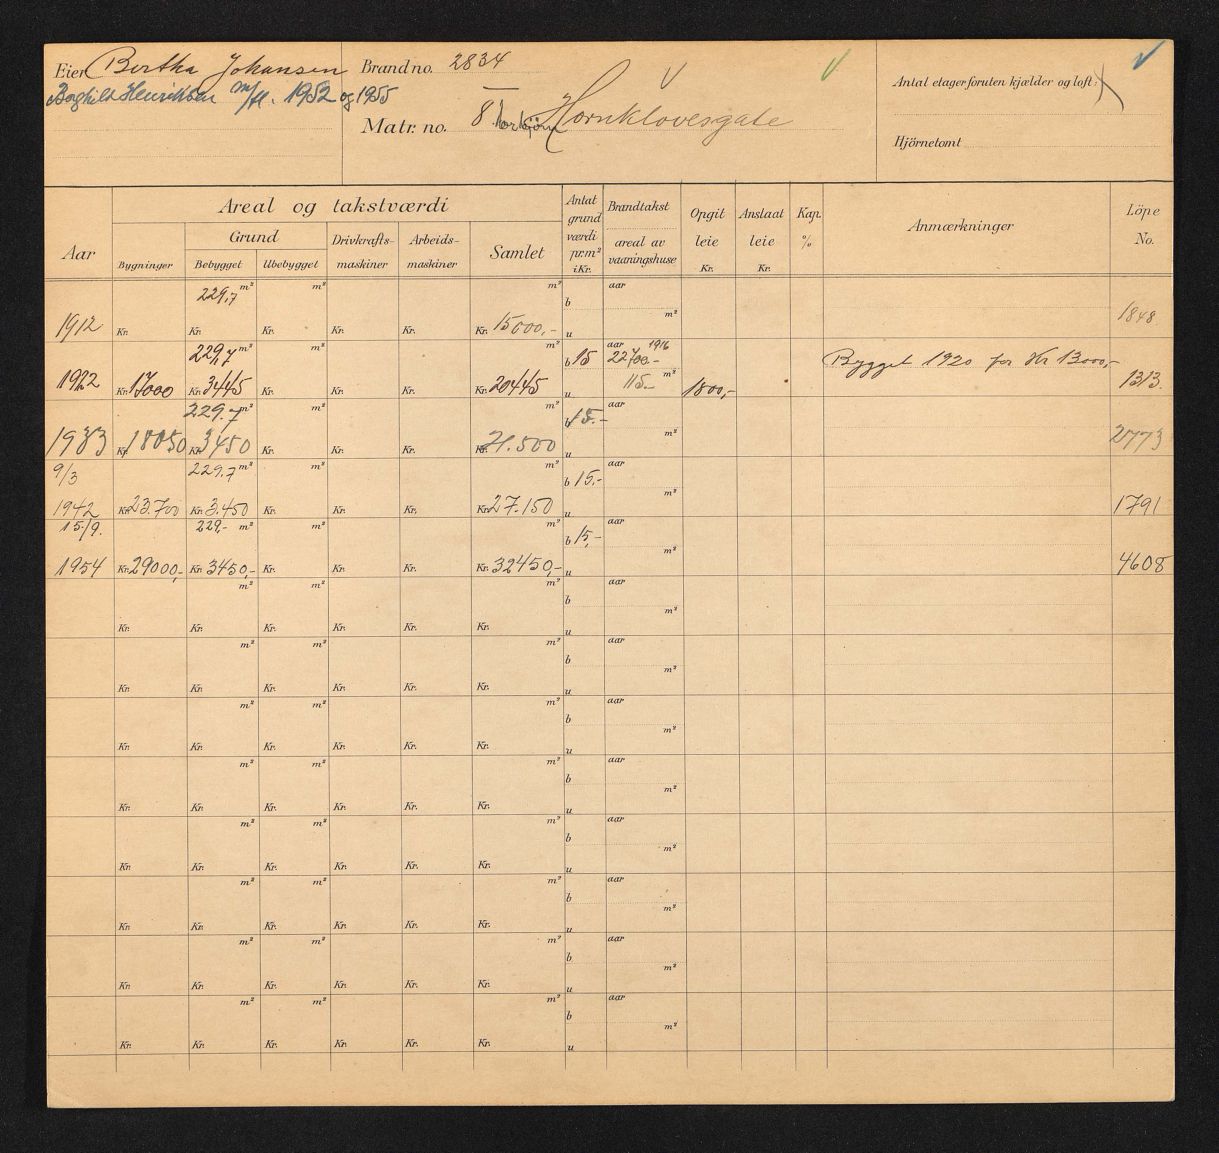 Eier Bertha Johansen
Borghild Henriksen m/fl. 1952 og 1955
Brand no. 2834
Matr. no. 8 Torbjørn Hornklovesgate
V
Antal etager foruten kjælder og loft:
Hjörnetomt
Aar
Areal og takstværdi
Bygninger
Grund
Bebygget
Ubebygget
Drivkrafts-
maskiner
Arbeids-
maskiner
Samlet
Antat
grund
værdi
pr.m²
i Kr.
Brandtakst
areal av
vaaningshuse
Opgit
leie
Kr.
Anslaat
leie
Kr.
Kap.
%
Anmærkninger
Löpe
No.
229,7 m² m² m² b aar
1912 Kr. Kr. Kr. Kr. Kr. Kr. 15000,- u m² 1848
229,7 m² m² m² b 15 aar 1916 22700.- Bygget 1920 for Kr 13000,-
1922 Kr. 17000 Kr. 3445 Kr. Kr. Kr. Kr. 20445 u 115.- m² 1800,- 1313.
229.7 m² m² m² b 15.- aar
1933 Kr. 18050 Kr. 3450 Kr. Kr. Kr. Kr. 21.500 u m² 2773
9/3 229.7 m² m² m² b 15.- aar
1942 Kr. 23.700 Kr. 3.450 Kr. Kr. Kr. Kr. 27.150 u m² 1791
15/9. 229,- m² m² m² b 15,- aar
1954 Kr. 29000,- Kr. 3450,- Kr. Kr. Kr. Kr. 32450,- u m² 4608
m² m² m² b aar
Kr. Kr. Kr. Kr. Kr. Kr. u m²
m² m² m² b aar
Kr. Kr. Kr. Kr. Kr. Kr. u m²
m² m² m² b aar
Kr. Kr. Kr. Kr. Kr. Kr. u m²
m² m² m² b aar
Kr. Kr. Kr. Kr. Kr. Kr. u m²
m² m² m² b aar
Kr. Kr. Kr. Kr. Kr. Kr. u m²
m² m² m² b aar
Kr. Kr. Kr. Kr. Kr. Kr. u m²
m² m² m² b aar
Kr. Kr. Kr. Kr. Kr. Kr. u m²
m² m² m² b aar
Kr. Kr. Kr. Kr. Kr. Kr. u m²